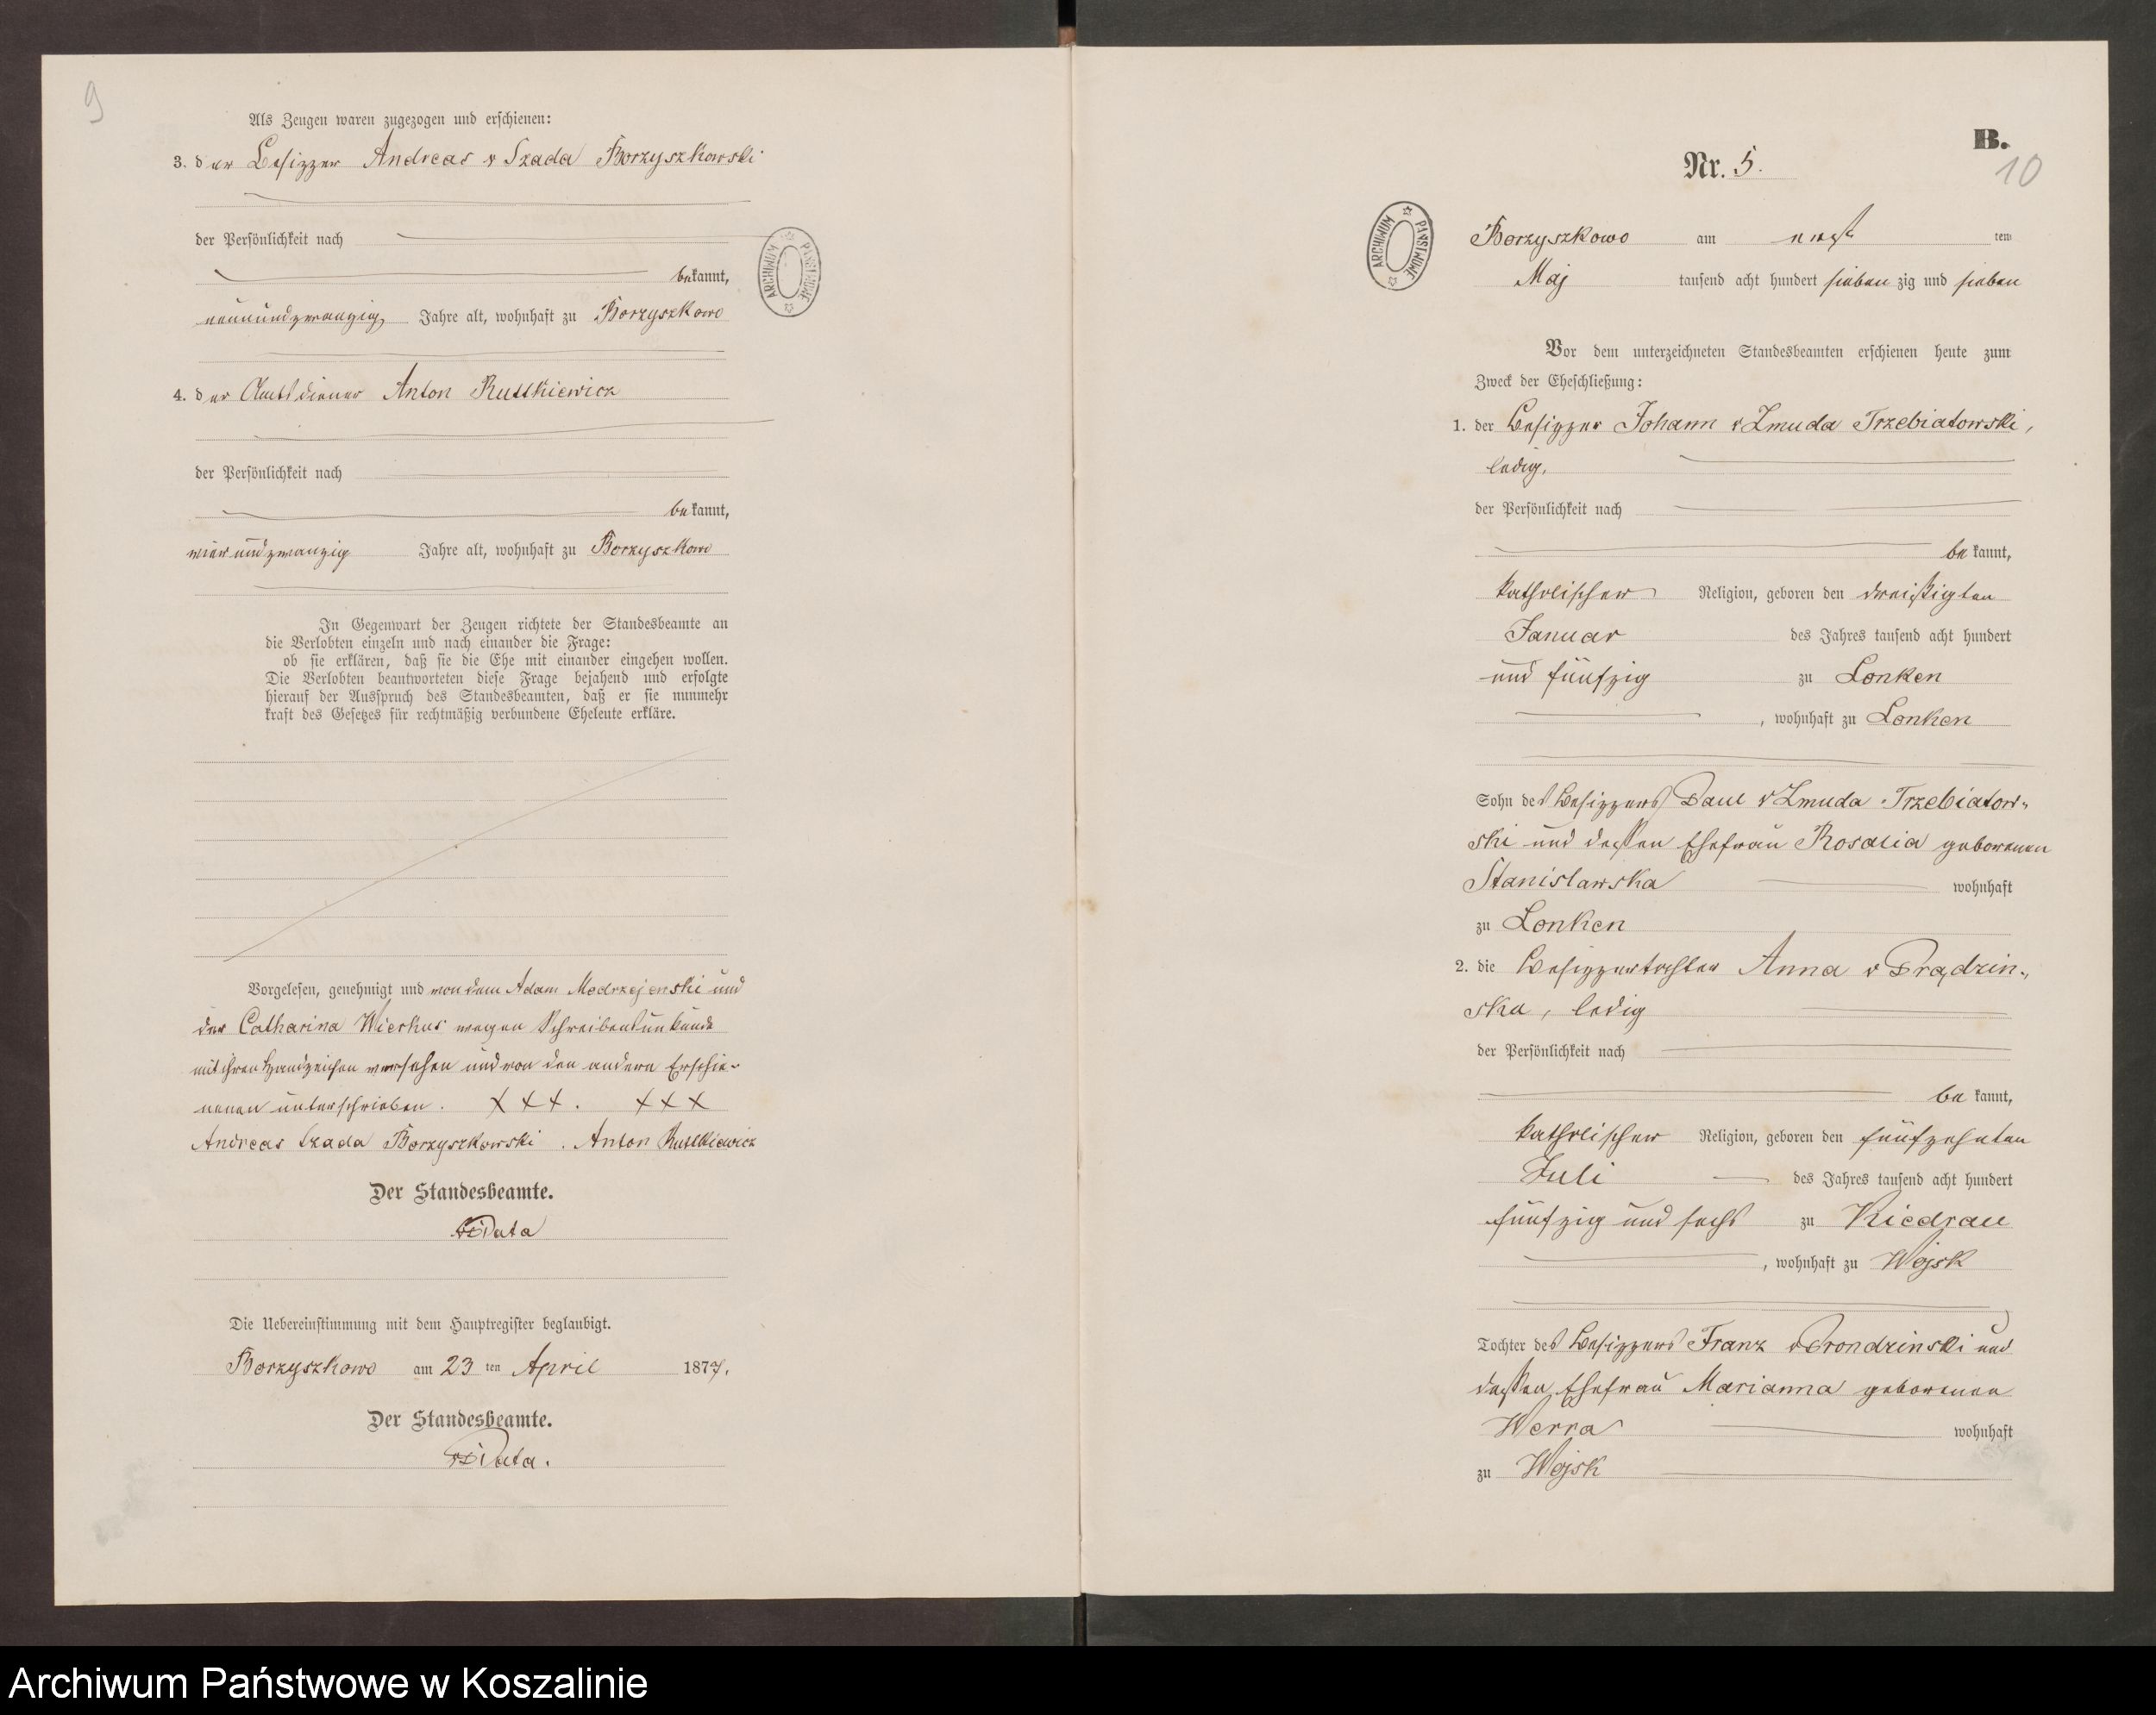 9
Als Zeugen waren zugezogen und erschienen:
3. der Besizzer Andreas v Szada Borzyszkowski
der Persönlichkeit nach
bekannt,
neunundzwanzig Jahre alt, wohnhaft zu Borzyszkowo
4. der Amtsdiener Anton Ruttkiewicz
der Persönlichkeit nach
bekannt,
vierundzwanzig Jahre alt, wohnhaft zu Borzyszkowo
In Gegenwart der Zeugen richtete der Standesbeamte an
die Verlobten einzeln und nach einander die Frage:
ob sie erklären, daß sie die Ehe mit einander eingehen wollen.
Die Verlobten beantworteten diese Frage bejahend und erfolgte
hierauf der Ausspruch des Standesbeamten, daß er sie nunmehr
kraft des Gesetzes für rechtmäßig verbundene Eheleute erkläre.
Vorgelesen, genehmigt und von dem Adam Modrzejewski und
der Catharina Wierkus wegen Schreibensunkunde
mit ihren Handzeichen versehen und von den andern Erschie-
nenen unterschrieben. XXX. XXX
Andreas Szada Borzyszkowski. Anton Ruttkiewicz
Der Standesbeamte.
Die Uebereinstimmung mit dem Hauptregister beglaubigt.
Borzyszkowo am 23 ten April 1877.
Der Standesbeamte.
ARCHIWUM PAŃSTWOWE
B.
Nr. 5.
10
ARCHIWUM PAŃSTWOWE
Borzyszkowo am erst ten
Maj tausend acht hundert sieben zig und sieben
Vor dem unterzeichneten Standesbeamten erschienen heute zum
Zweck der Eheschließung:
1. der Besizzer Johann v Zmuda Trzebiatowski,
ledig,
der Persönlichkeit nach
bekannt,
katholischer Religion, geboren den dreißigten
Januar des Jahres tausend acht hundert
und fünfzig zu Lonken
, wohnhaft zu Lonken
Sohn des Besizzers Paul v Zmuda Trzebiatow-
ski und dessen Ehefrau Rosalia geborenen
Stanislawska wohnhaft
zu Lonken
2. die Besizzertochter Anna v Prądzin-
ska, ledig
der Persönlichkeit nach
bekannt,
katholischer Religion, geboren den fünfzehnten
Juli des Jahres tausend acht hundert
fünfzig und sechs zu Kiedrau
, wohnhaft zu Wojsk
Tochter des Besizzers Franz v Prondzinski und
dessen Ehefrau Marianna geborenen
Werra wohnhaft
zu Wojsk
Archiwum Państwowe w Koszalinie